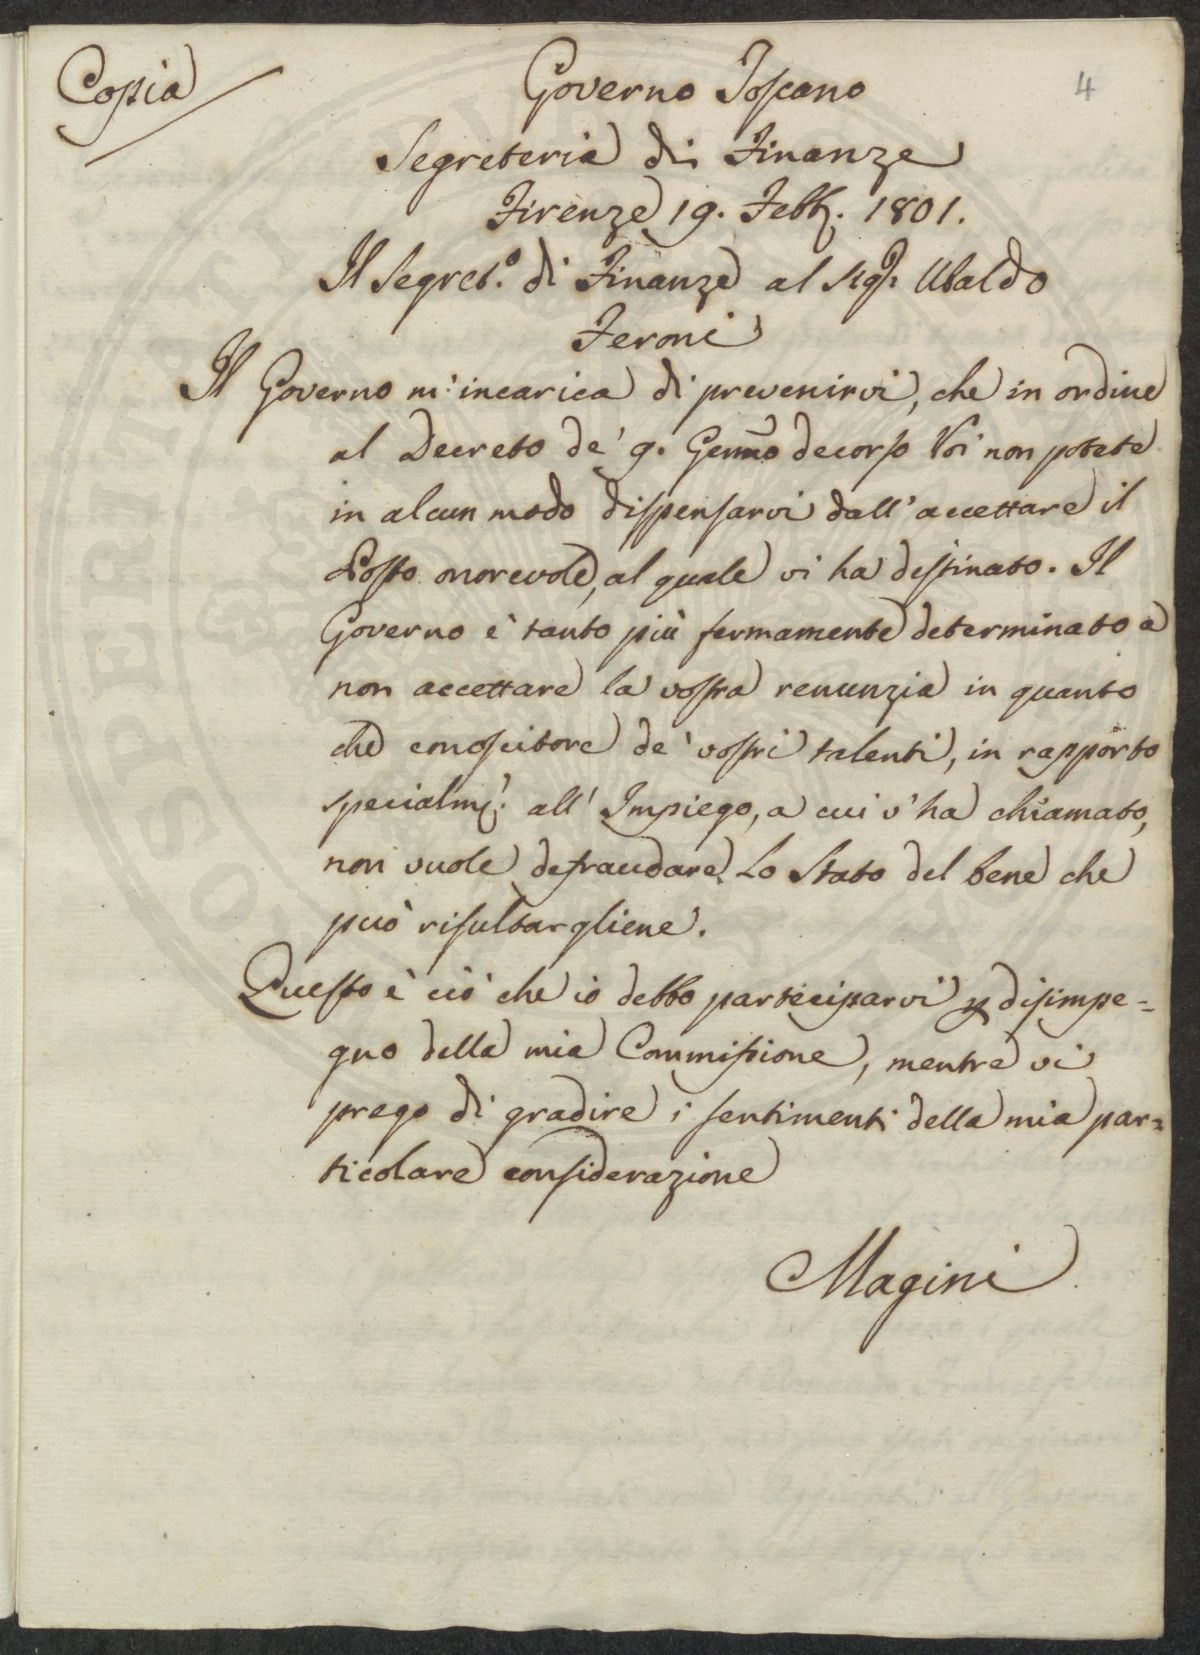 Copia
4
Governo Toscano
Segreteria di Finanze
Firenze 19. Febb. 1801.
Il Segret.º di Finanze al Sig.r Ubaldo
Feroni
Il Governo m'incarica di prevenirvi, che in ordine
al Decreto de' 9. Genn̄o decorso Voi non potete
in alcun modo dispensarvi dall'accettare il
Posto onorevole, al quale vi ha destinato. Il
Governo è tanto più fermamente determinato a
non accettare la vostra renunzia in quanto
che conoscitore de' vostri talenti, in rapporto
specialm.e all'Impiego, a cui v'ha chiamato,
non vuole defraudare Lo Stato del bene che
può risultargliene.
Questo è ciò che io debbo parteciparvi p disimpe=
gno della mia Commissione, mentre vi
prego di gradire i sentimenti della mia par=
ticolare considerazione
Magini